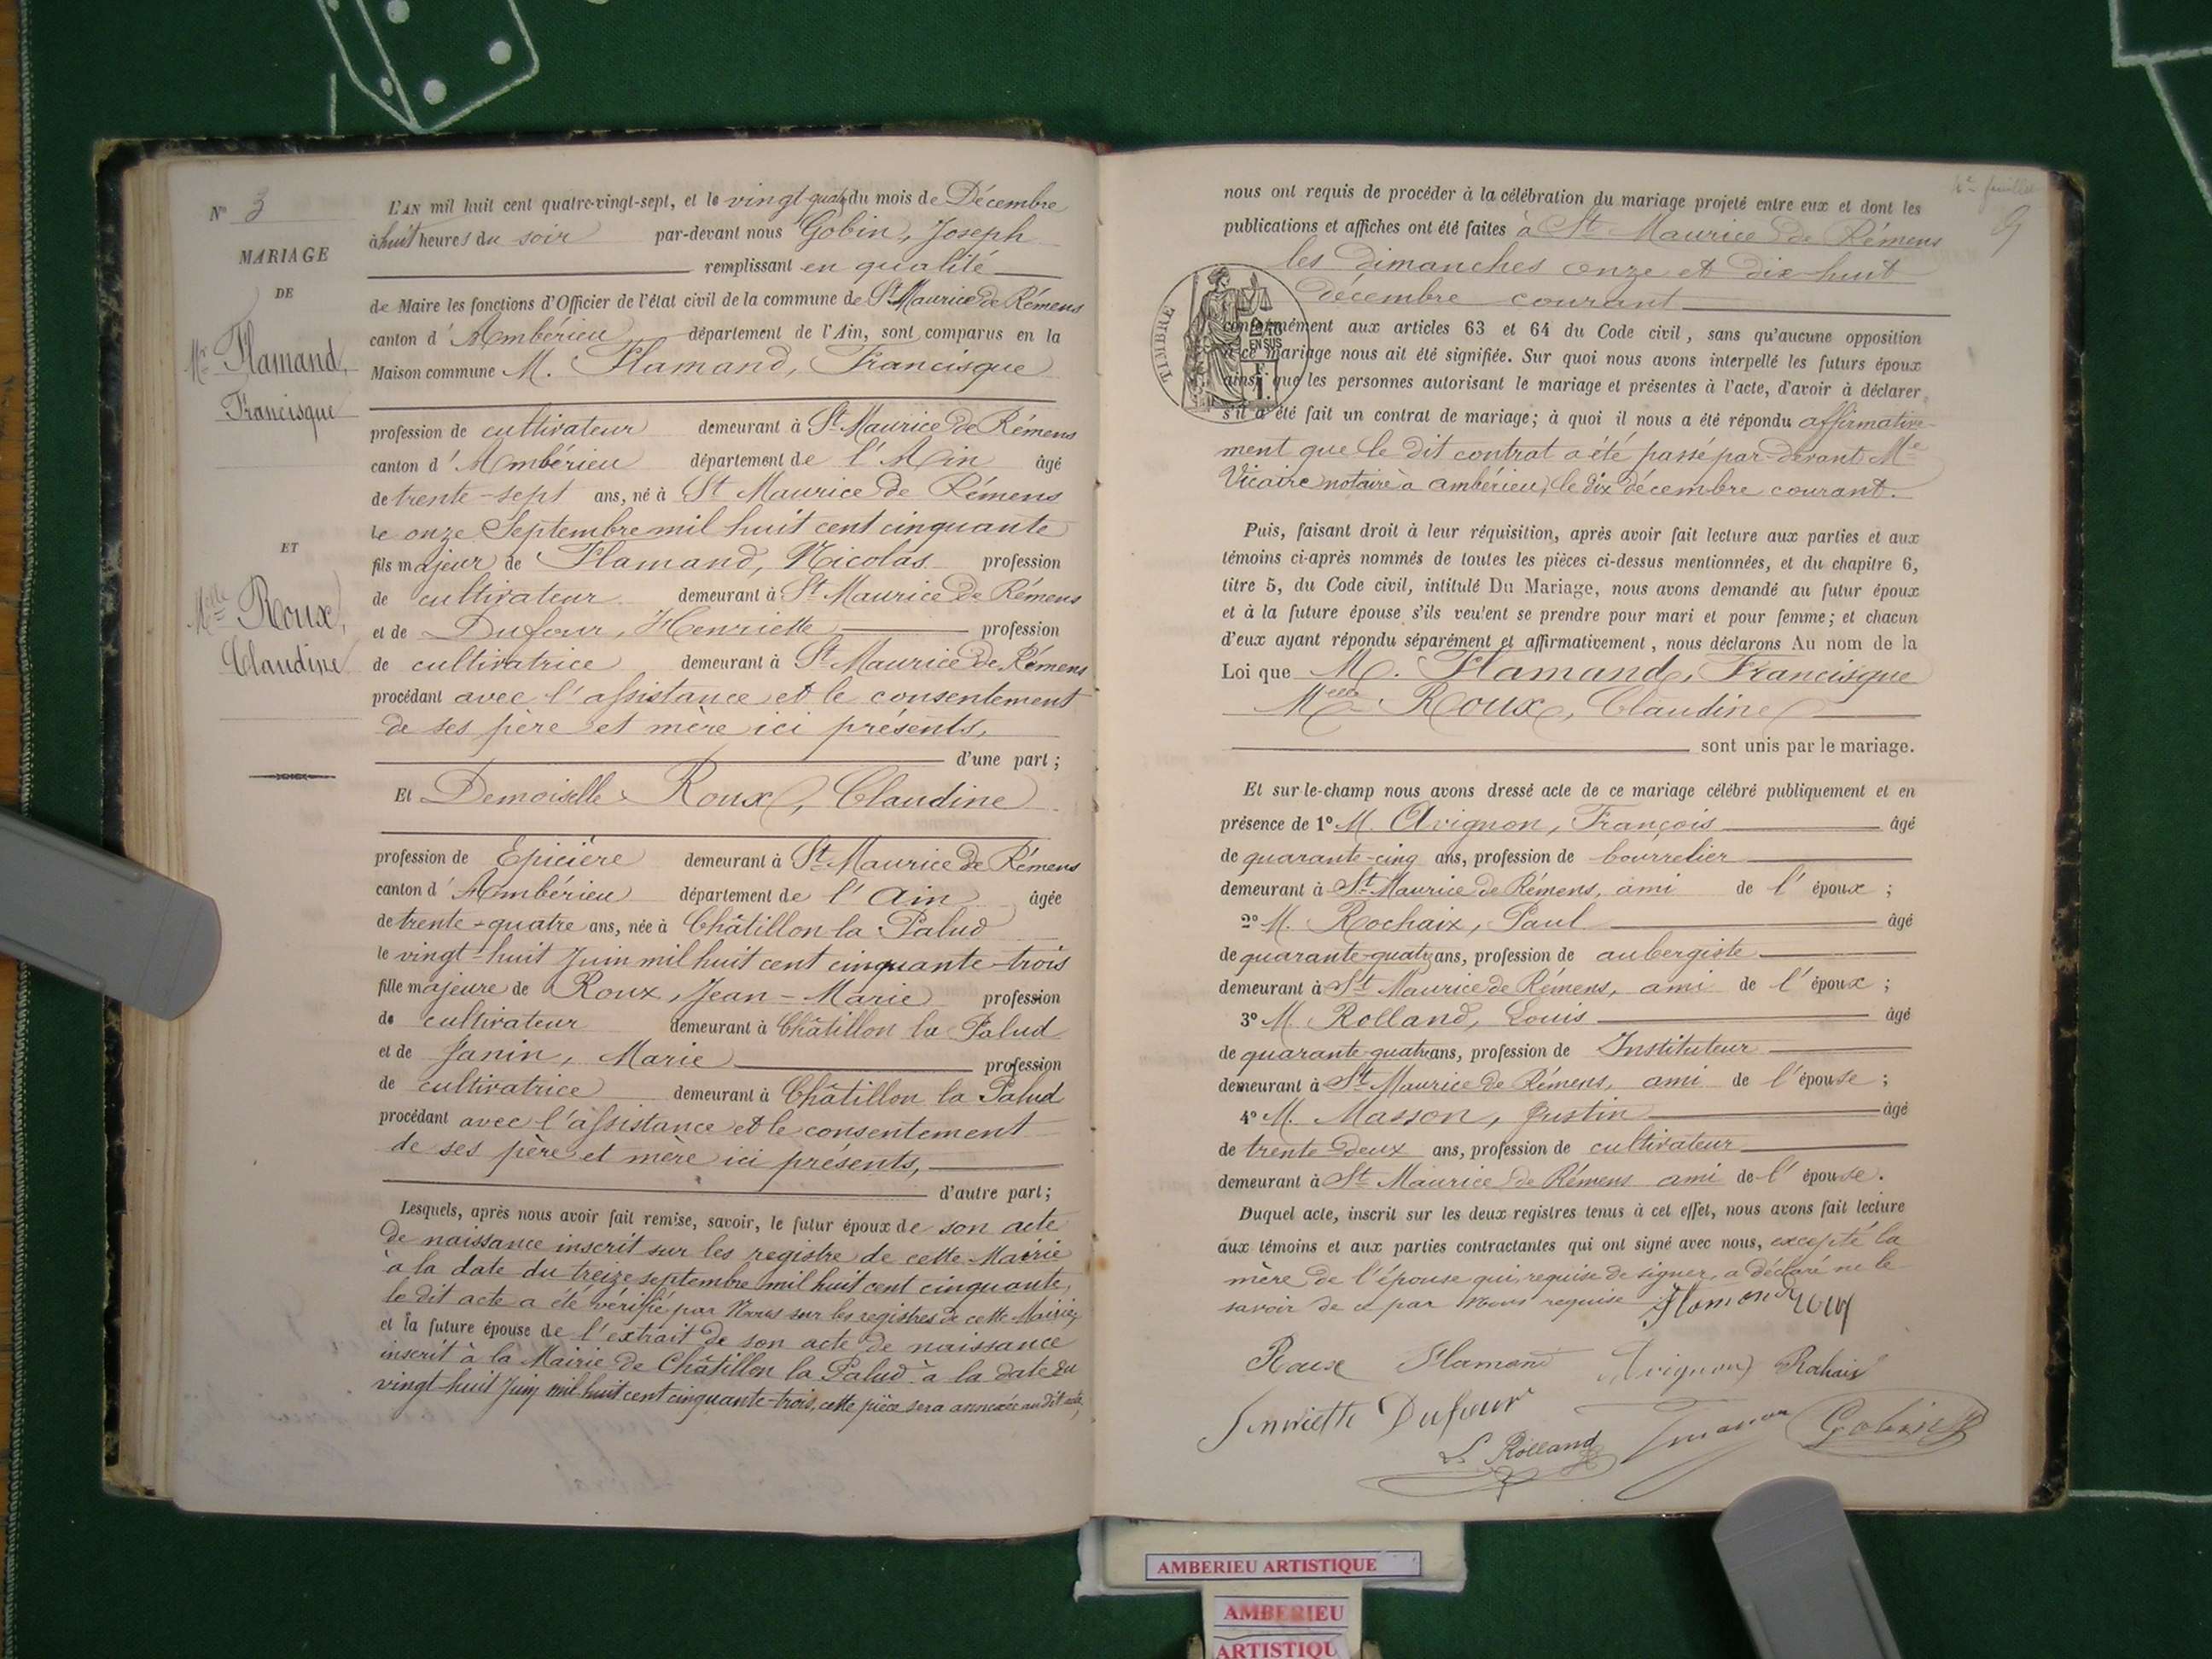 N° 3
MARIAGE
DE
Mr Flamand,
Francisque
ET
Melle Roux,
Claudine
L'AN mil huit cent quatre-vingt-sept, et le vingt-quatre du mois de Décembre
à huit heures du soir par-devant nous Gobin, Joseph
remplissant en qualité
de Maire les fonctions d'Officier de l'état civil de la commune de St Maurice de Rémens
canton d'Ambérieu département de l'Ain, sont comparus en la
Maison commune M. Flamand, Francisque
profession de cultivateur demeurant à St Maurice de Rémens
canton d'Ambérieu département de l'Ain âgé
de trente-sept ans, né à St Maurice de Rémens
le onze Septembre mil huit cent cinquante
fils majeur de Flamand, Nicolas profession
de cultivateur demeurant à St Maurice de Rémens
et de Dufour, Henriette profession
de cultivatrice demeurant à St Maurice de Rémens
procédant avec l'assistance et le consentement
de ses père et mère ici présents,
d'une part ;
Et Demoiselle Roux, Claudine
profession de Epicière demeurant à St Maurice de Rémens
canton d'Ambérieu département de l'Ain âgée
de trente-quatre ans, née à Châtillon la Palud
le vingt-huit Juin mil huit cent cinquante-trois
fille majeure de Roux, Jean-Marie profession
de cultivateur demeurant à Châtillon la Palud
et de Janin, Marie profession
de cultivatrice demeurant à Châtillon la Palud
procédant avec l'assistance et le consentement
de ses père et mère ici présents,
d'autre part ;
Lesquels, après nous avoir fait remise, savoir, le futur époux de son acte
de naissance inscrit sur les registre de cette Mairie
à la date du treize septembre mil huit cent cinquante,
le dit acte a été vérifié par Nous sur les registres de cette Mairie,
et la future épouse de l'extrait de son acte de naissance
inscrit à la Mairie de Châtillon la Palud à la date du
vingt-huit Juin mil huit cent cinquante-trois, cette pièce sera annexée au dit acte,
2e feuillet
9
nous ont requis de procéder à la célébration du mariage projeté entre eux et dont les
publications et affiches ont été faites à St Maurice de Rémens
les dimanches onze et dix-huit
décembre courant
TIMBRE
EN SUS
conformément aux articles 63 et 64 du Code civil, sans qu'aucune opposition
à ce mariage nous ait été signifiée. Sur quoi nous avons interpellé les futurs époux
ainsi que les personnes autorisant le mariage et présentes à l'acte, d'avoir à déclarer
s'il a été fait un contrat de mariage ; à quoi il nous a été répondu affirmative-
ment que le dit contrat a été passé par-devant Me
Vicaire notaire à ambérieu, le dix décembre courant.
Puis, faisant droit à leur réquisition, après avoir fait lecture aux parties et aux
témoins ci-après nommés de toutes les pièces ci-dessus mentionnées, et du chapitre 6,
titre 5, du Code civil, intitulé Du Mariage, nous avons demandé au futur époux
et à la future épouse s'ils veulent se prendre pour mari et pour femme ; et chacun
d'eux ayant répondu séparément et affirmativement, nous déclarons Au nom de la
Loi que M. Flamand, Francisque
Melle Roux, Claudine
sont unis par le mariage.
Et sur-le-champ nous avons dressé acte de ce mariage célébré publiquement et en
présence de 1° M. Avignon, François âgé
de quarante-cinq ans, profession de bourrelier
demeurant à St Maurice de Rémens, ami de l'époux ;
2° M. Rochaix, Paul âgé
de quarante-quatre ans, profession de aubergiste
demeurant à St Maurice de Rémens, ami de l'époux ;
3° M. Rolland, Louis âgé
de quarante-quatre ans, profession de Instituteur
demeurant à St Maurice de Rémens, ami de l'épouse ;
4° M. Masson, Justin âgé
de trente-deux ans, profession de cultivateur
demeurant à St Maurice de Rémens ami de l'épouse.
Duquel acte, inscrit sur les deux registres tenus à cet effet, nous avons fait lecture
aux témoins et aux parties contractantes qui ont signé avec nous, excepté la
mère de l'épouse qui, requise de signer, a déclaré ne le
savoir de ce par Nous requise Flamand roux
Roux Flamand Avignon Rochaix
Henriette Dufour
L. Rolland Masson Gobin
AMBERIEU ARTISTIQUE
AMBERIEU
ARTISTIQU